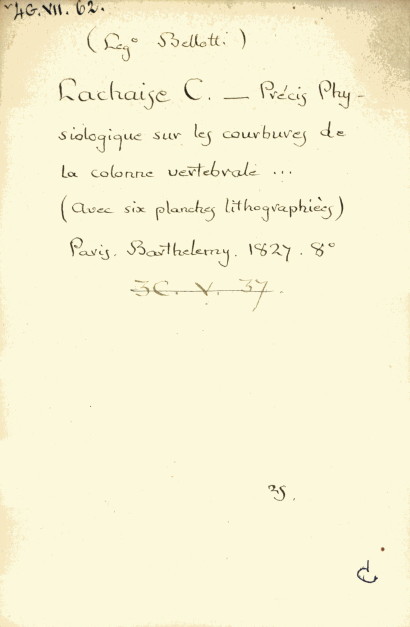 4G.VII.62.
(Leg° Bellotti)
Lachaise C. — Précis Phy-
siologique sur les courbures de
la colonne vertebrale ...
(Avec six planches lithographiées)
Paris. Barthelemy. 1827. 8°
3C. V. 37.
35.